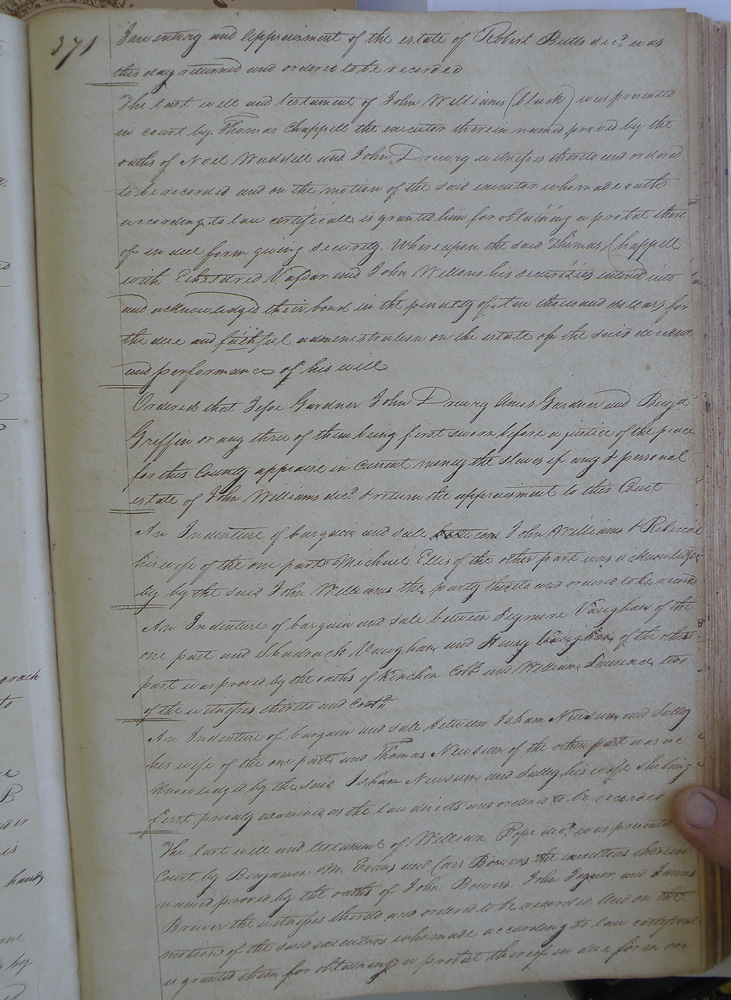 371
Inventory and Appraisment of the estate of Robert Butts decd. was
this day returned and ordered to be recorded
The last will and testament of John Williams (black) was presented
in court by Thomas Chappell the executor therein named proved by the
oaths of Noel Waddell and John Drewry witnesses thereto and ordered
to be recorded and on the motion of the said executor who made oath
according to law certificate is granted him for obtaining a probat there
of in due form giving security. Whereupon the said Thomas Chappell
with Etheldred and John his securities entered into
and acknowledged their bond in the penalty of thousand dollars for
the due and faithful administration on the estate of the said decedent
and performance of his will
Ordered that Jesse Gardner John Drewry Amos Gardner and Benja.
Griffin or any three of them being first sworn before a justice of the peace
for this County appraise in current money the slaves if any & personal
estate of John Williams decd. & return the appraisment to this Court
An Indenture of bargain and sale between John Williams & Rebecca
his wife of the one part & Michael Ellis of the other part was acknowledged
by by the said John Williams the party thereto and ordered to be
An Indenture of bargain and sale between Vaughan of the
one part and Shadrach Vaughan and Henry Vaughan of the other
part was proved by the oaths of Kinchen Cobb and William Laurence two
of the witnesses thereto and
An Indenture of bargain and sale between Isham Newsum and Salley
his wife of the one part and Thomas Newsum of the other part was ac
knowledged by the said Isham Newsum and Salley his wife she being
first privily examined as the law directs and ordered to be recorded
The last will and testament of William Pope decd. was presented
Court by Benjamin Evans and Carr Bowers the executors therein
named proved by the oaths of John Bowers John and James
Brewer the witnesses thereto and ordered to be recorded And on the
motion of the said executors who made according to law certificate
is granted them for obtaining a probat thereof in due form on